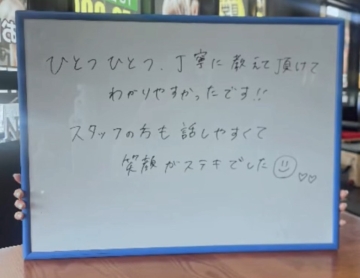 ひとつひとつ、丁寧に教えて頂けて
わかりやすかったです!!
スタッフの方も話しやすくて
笑顔がステキでした